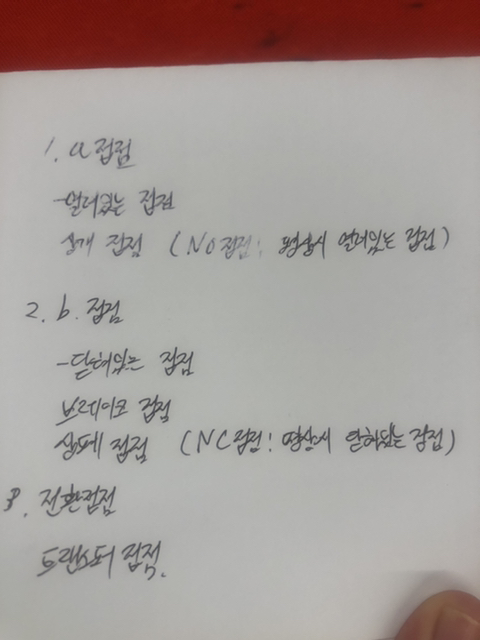 1. a접점
-열려있는 접점
상개 접점 (NO접점: 평상시 열려있는 접점)
2. b. 접점
-닫혀있는 접점
브레이크 접점
상폐 접점 (NC접점: 평상시 닫혀있는 접점)
3. 전환접점
트랜스퍼 접점.